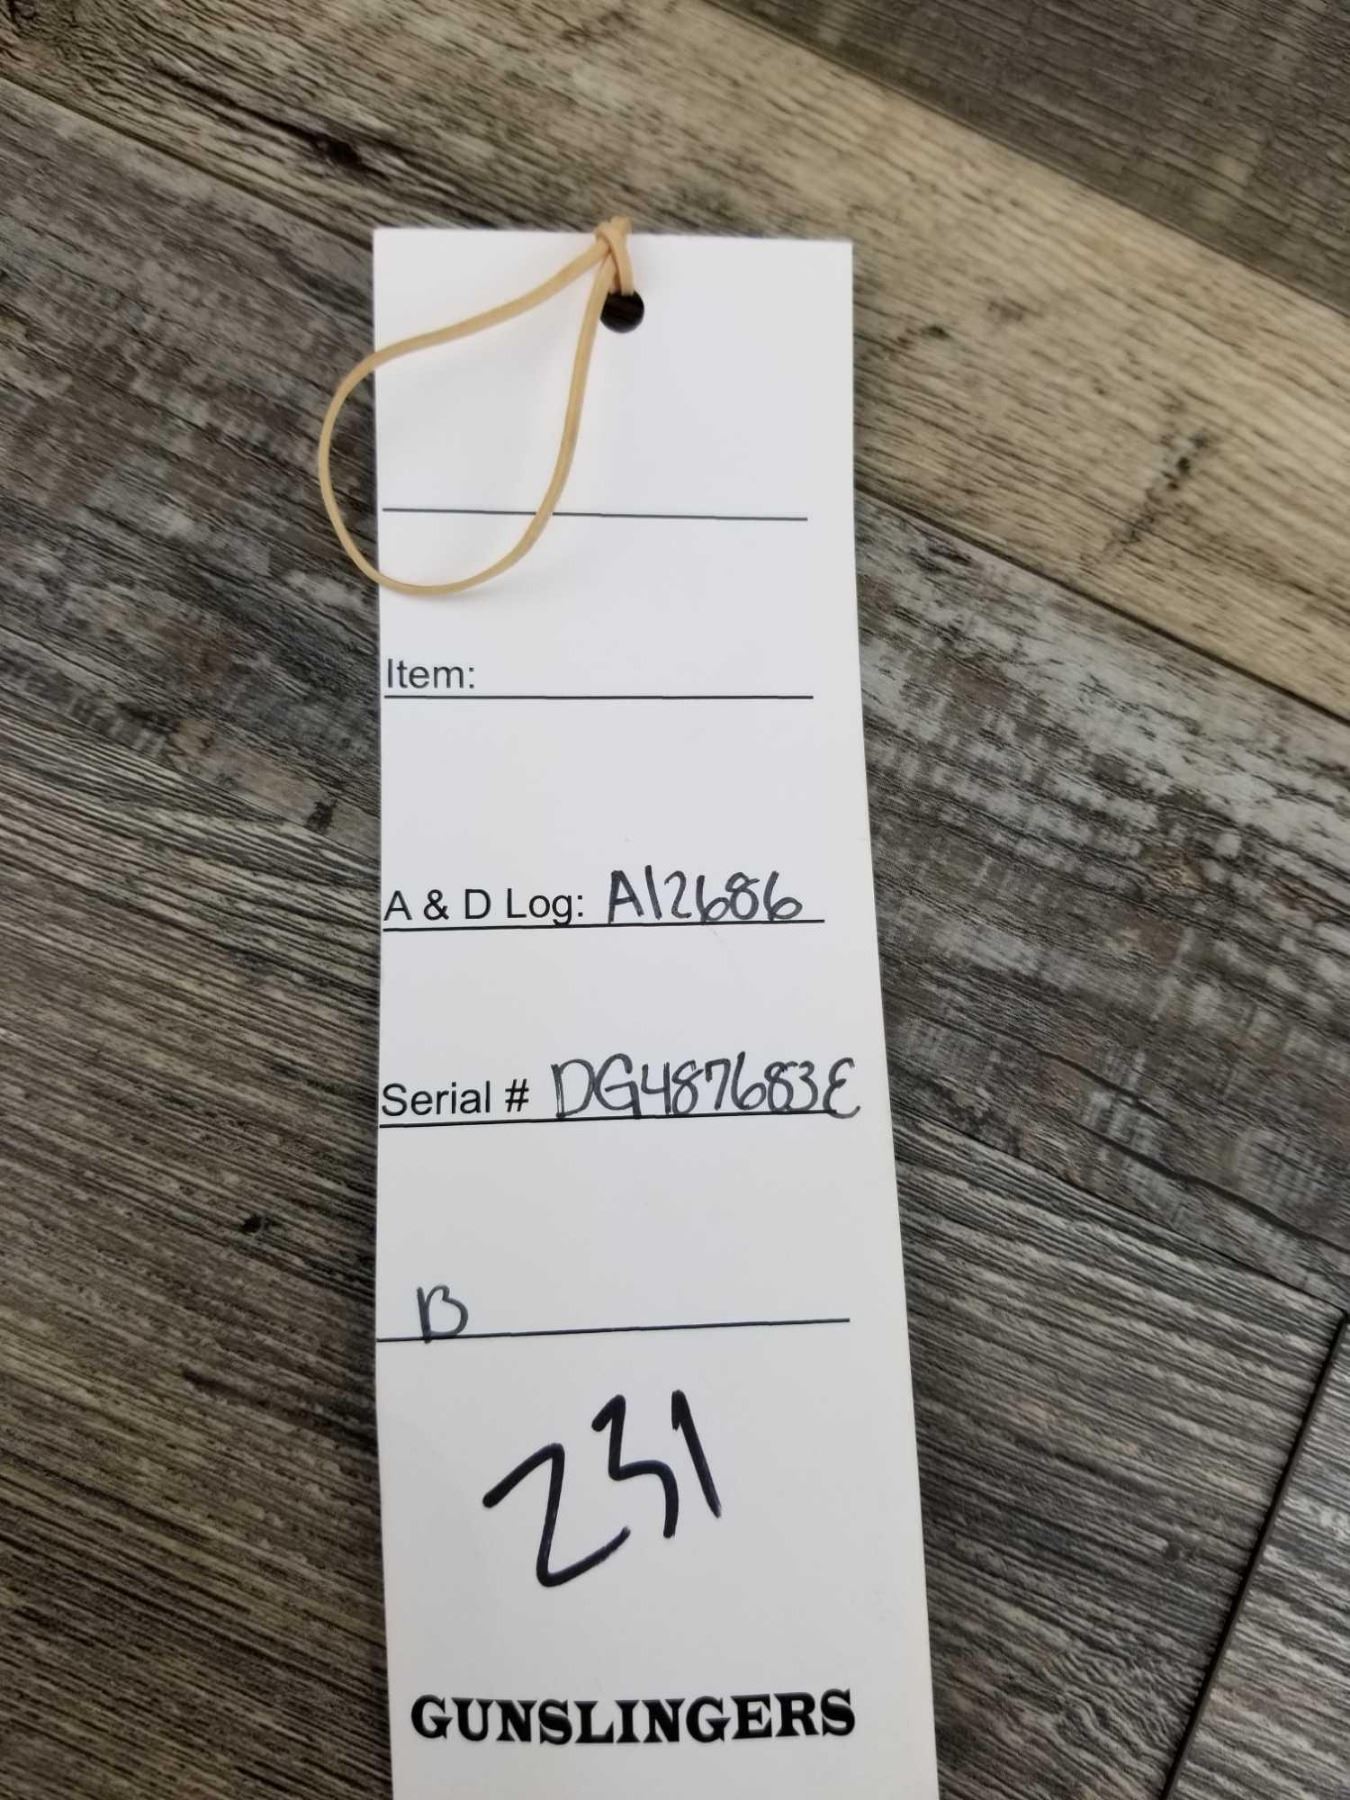 Item:
A & D Log: A12686
Serial # DG487683E
B
231
GUNSLINGERS